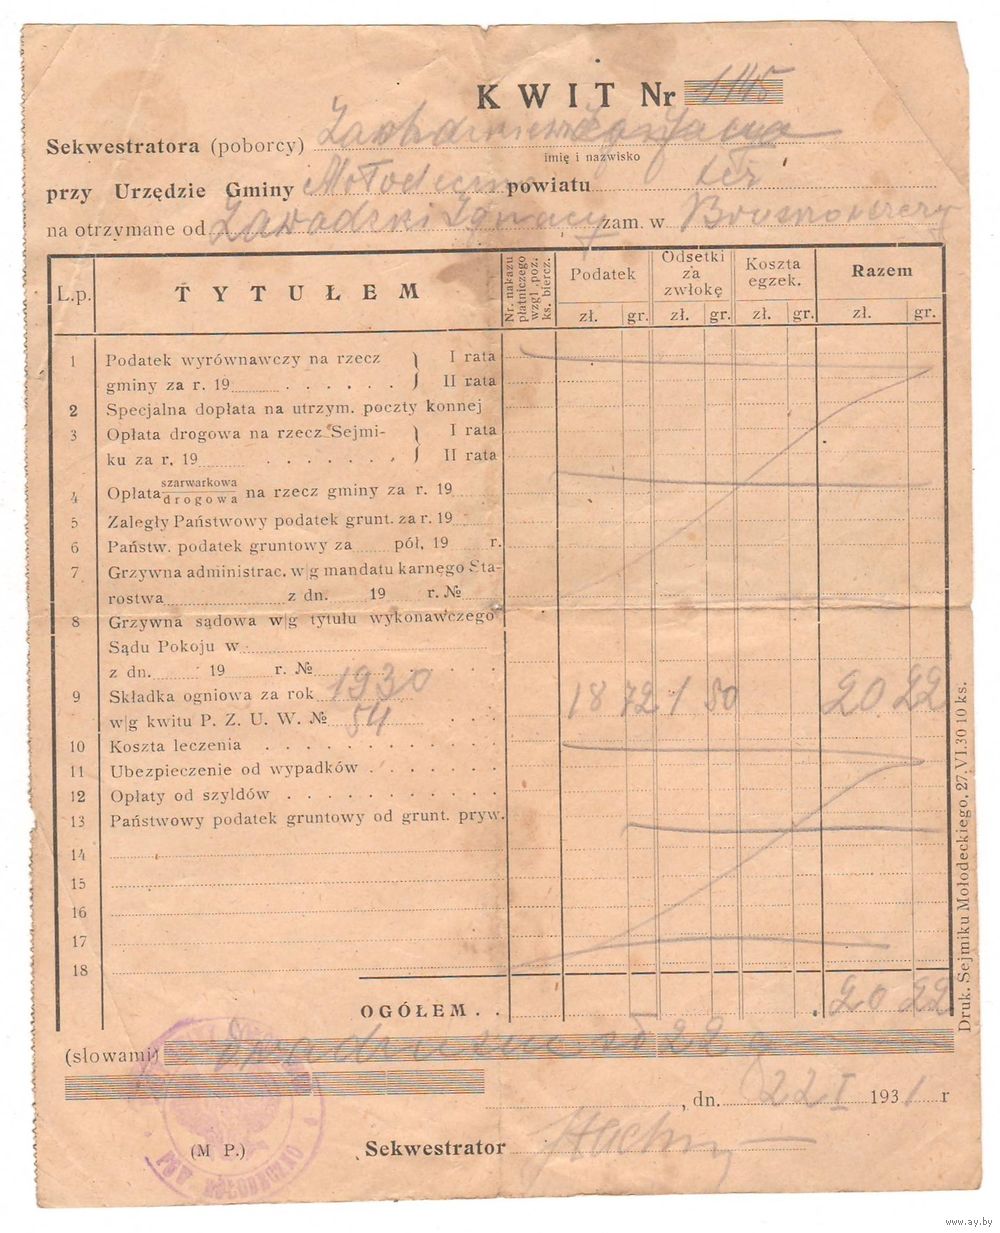 KWIT Nr 1145
Sekwestratora (poborcy)
imię i nazwisko
przy Urzędzie Gminy Mołodeczno powiatu też
na otrzymane od Zawadzki Ignacy zam. w
L.p. TYTUŁEM Nr. nakazu płatniczego wzgl. poz. ks. biercz. Podatek Odsetki za zwłokę Koszta egzek. Razem
zł. gr. zł. gr. zł. gr. zł. gr.
1 Podatek wyrównawczy na rzecz } I rata
gminy za r. 19 . . . . . . } II rata
2 Specjalna dopłata na utrzym. poczty konnej
3 Opłata drogowa na rzecz Sejmi- } I rata
ku za r. 19 . . . . . . . } II rata
4 Opłata szarwarkowa drogowa na rzecz gminy za r. 19
5 Zaległy Państwowy podatek grunt. za r. 19
6 Państw. podatek gruntowy za pół, 19 r.
7 Grzywna administrac. w|g mandatu karnego Sta-
rostwa z dn. 19 r. №
8 Grzywna sądowa w|g tytułu wykonawczego
Sądu Pokoju w
z dn. 19 r. №
9 Składka ogniowa za rok 1930 18 72 1 50 20 22
w|g kwitu P. Z. U. W. № 54 . . .
10 Koszta leczenia . . . . . . . . . . . .
11 Ubezpieczenie od wypadków . . . . . . .
12 Opłaty od szyldów . . . . . . . . . . .
13 Państwowy podatek gruntowy od grunt. pryw.
14
15
16
17
18
OGÓŁEM . . 20 22
(słowami) Dwadzieścia zł 22 g
, dn. 22 I 1931 r
(M P.) Sekwestrator
MOŁODECZNO
Druk. Sejmiku Mołodeckiego, 27.VI.30 10 ks.
www.ay.by